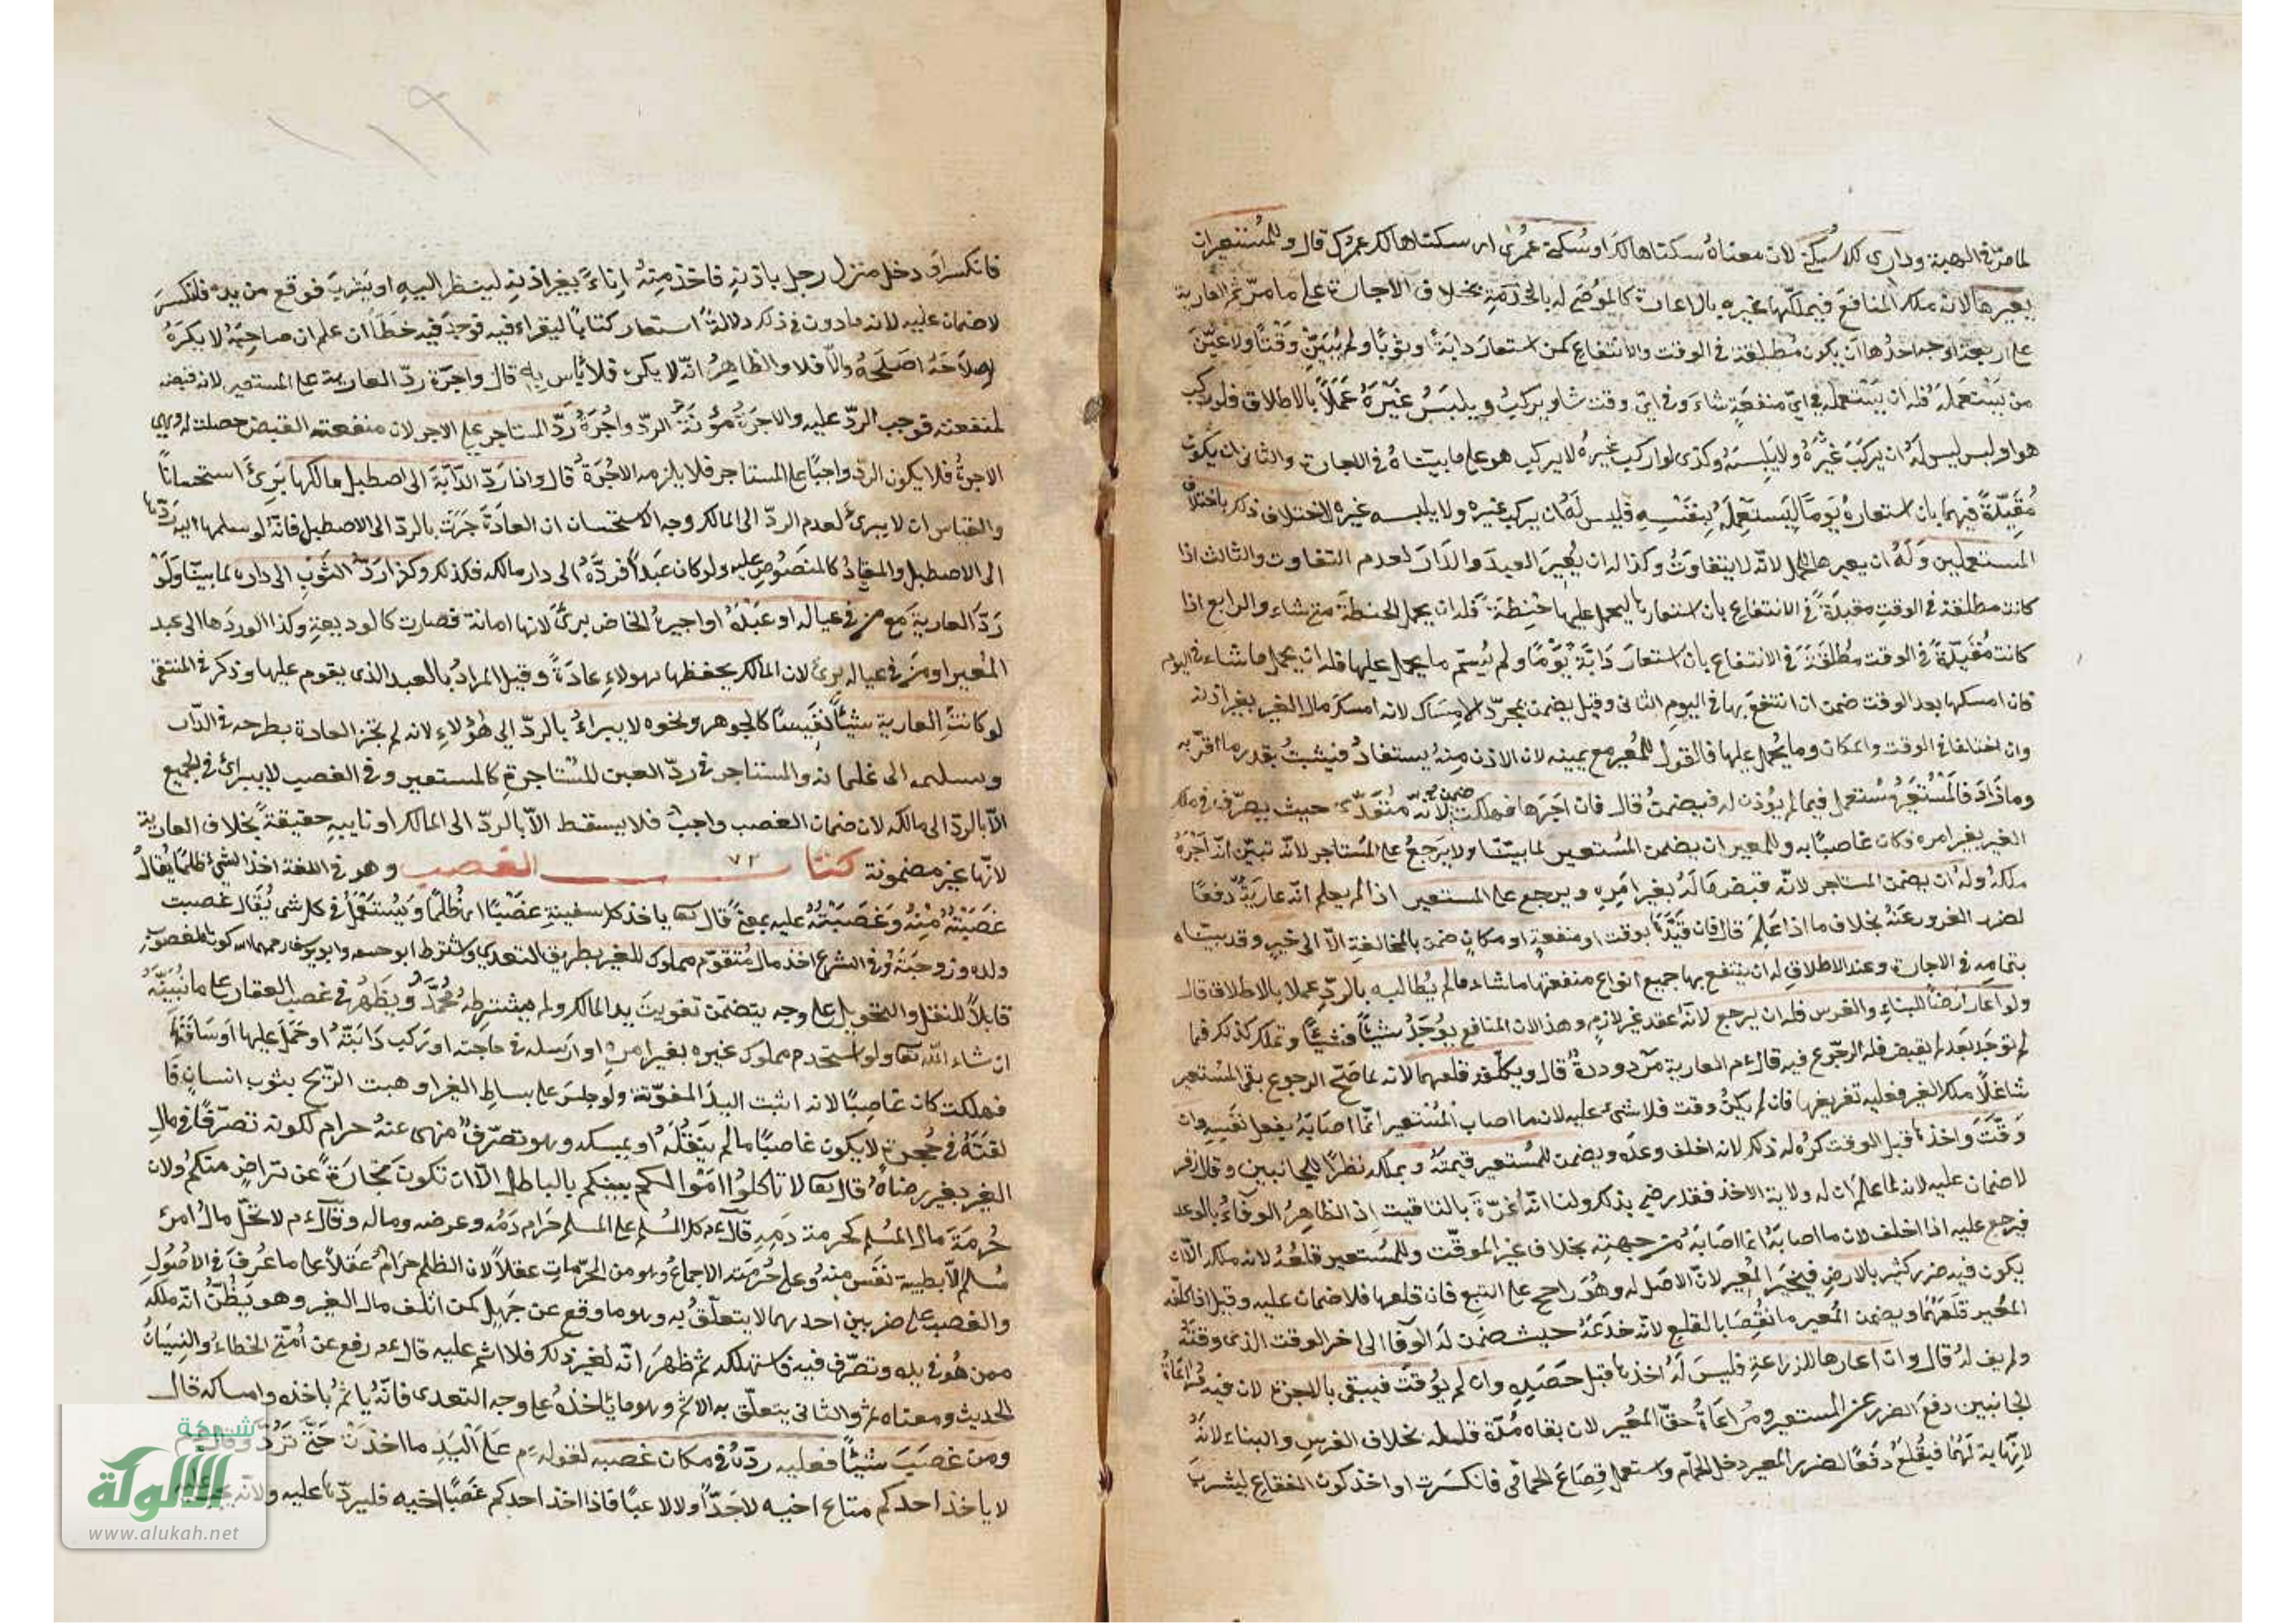 لما مرّ في الهبة وداري لك سكنى لان معناه سكناها لك او سكنى عمرى اى سكناها لك عمرك قال وللمستعير ان
يعيرها لانه ملك المنافع فيملكها غيره بالاعارة كالموصى له بالخدمة بخلاف الاجارة على ما مرّ ثم العارية
على اربعة اوجه احدها ان يكون مطلقة في الوقت والانتفاع كمن استعار دابة او ثوبا ولم يبيّن وقتا ولا عيّن
من يستعمله فله ان يستعمله في اىّ منفعة شاء وفي اىّ وقت شاء ويركب ويلبس غيره عملا بالاطلاق فلو ركب
هو او لبس ليس له ان يركب غيره ولا يلبسه وكذى لو اركب غيره لا يركب هو على ما بيّناه في الاجارة والثانى ان يكون
مقيّدة فيهما بان استعاره يوما ليستعمله بنفسه فليس له ان يركب غيره ولا يلبسه غيره لاختلاف ذلك باختلاف
المستعملين وله ان يعيرها للحمل لانّه لا يتفاوت وكذا له ان يعير العبد والدار لعدم التفاوت والثالث اذا
كانت مطلقة في الوقت مقيدة في الانتفاع بان استعارها ليحمل عليها حنطة فله ان يحمل الحنطة متى شاء والرابع اذا
كانت مقيّدة في الوقت مطلقة في الانتفاع بان استعار دابة يوما ولم يسمّ ما يحمل عليها فله ان يحمل ما شاء في اليوم
فان امسكها بعد الوقت ضمن ان انتفع بها في اليوم الثانى وقيل يضمن بمجرّد الامساك لانه امسك مال الغير بغير اذنه
وان اختلفا في الوقت والمكان وما يحمل عليها فالقول للمعير مع يمينه لان الاذن منه يستفاد فيثبت بقدر ما اقرّ به
وما زاد فالمستعير مستعمل فيما لم يؤذن له فيضمن قال فان اجرها فهلكت ضمن لانّه متعدّ حيث يتصرّف في ملك
الغير بغير امره وكان غاصبا به وللمعير ان يضمن المستعير لما بيّنا ولا يرجع على المستاجر لانّه تبيّن انّه آجر
ملكه وله ان يضمن المستاجر لانّه قبض ماله بغير امره ويرجع على المستعير اذا لم يعلم انّه عارية دفعا
لضرر الغرور عنه بخلاف ما اذا علم قال فان قيّدها بوقت او منفعة او مكان ضمن بالمخالفة الّا الى خير وقد بيّناه
بتمامه في الاجارة وعند الاطلاق له ان ينتفع بها جميع انواع منفعتها ما شاء ما لم يطالبه بالردّ عملا بالاطلاق قال
ولو اعار ارضا للبناء والغرس فله ان يرجع لانّه عقد غير لازم وهذا لان المنافع يوجد شيئا فشيئا وتملك كذلك فما
لم توجد بعد لم يقبض فله الرجوع فيه قال ءم العارية مردودة قال ويكلّفه قلعهما لانه لما صحّ الرجوع بقى المستعير
شاغلا ملك الغير فعليه تفريغها فان لم يكن وقت فلا شئ عليه لان ما اصاب المستعير انّما اصابه بفعل نفسه وان
وقّت واخذها قبل الوقت كره له ذلك لانه اخلف وعده ويضمن للمستعير قيمته ويملكه نظرا للجانبين وقال زفر
لا ضمان عليه لانه لما علم ان له ولاية الاخذ فقد رضى بذلك ولنا انّه غرّه بالتاقيت اذ الظاهر الوفاء بالوعد
فيرجع عليه اذا اخلف لان ما اصابه انما اصابه من جهته بخلاف غير الموقّت وللمستعير قلعه لانه ملكه الّا ان
يكون فيه ضرر كثير بالارض فيخير المعير لانّ الاصل له وهو راجح على التبع فان قلعها فلا ضمان عليه وقيل اذا كلّفه
المعير قلعهما ويضمن المعير ما نقصا بالقلع لانّه خدعه حيث ضمن له الوفا الى اخر الوقت الذى وقته
ولم يف له قال وان اعارها للزراعة فليس له اخذها قبل حصده وان لم يوقت فيبقى بالاجرة لان فيه مراعاة
الجانبين دفع الضرر عن المستعير ومراعاة حقّ المعير لان بقاه مدّة قليله بخلاف الغرس والبناء لانّه
لا نهاية لهما فيقلع دفعا لضرر المعير دخل الحمّام واستعمل قصاع الحمامى فانكسرت او اخذ كوز الفقاع ليشرب
فانكسر او دخل منزل رجل باذنه فاخذ منه اناء بغير اذنه لينظر اليه او يشرب فوقع من يده فانكسر
لا ضمان عليه لانه مادون في ذلك دلالة استعار كتابا ليقراء فيه فوجد فيه خطأ ان علم ان صاحبه لا يكره
اصلاحه اصلحه والّا فلا والظاهر انّه لا يكره فلا بأس به قال واجرة ردّ العارية على المستعير لانه قبضه
لمنفعته فوجب الردّ عليه والاجرة مؤنة الردّ واجرة ردّ المستاجر على الاجر لان منفعته القبض حصلت له وهى
الاجرة فلا يكون الردّ واجبا على المستاجر فلا يلزمه الاجرة قال واذا ردّ الدّابة الى اصطبل مالكها برئ استحسانا
والقياس ان لا يبرئ لعدم الردّ الى المالك وجه الاستحسان ان العادة جرت بالردّ الى الاصطبل فانّه لو سلمها اليه ردّها
الى الاصطبل والمعتاد كالمنصوص عليه ولو كان عبدا فردّه الى دار مالكه فكذلك وكذا ردّ الثوب الى داره لما بيّنا ولو
ردّ العارية مع من في عياله او عبده او اجيره الخاص برئ لانها امانة فصارت كالوديعة وكذا لو ردها الى عبد
المعير او من في عياله برئ لان المالك يحفظها بهولاء عادة وقيل المراد بالعبد الذى يقوم عليها وذكر في المنتقى
لو كانت العارية شيئا نفيسا كالجوهر ونحوه لا يبراء بالردّ الى هؤلاء لانه لم تجز العادة بطرحه في الدّار
وتسليمه الى غلمانه والمستاجر في ردّ العين المستاجرة كالمستعير وفي الغصب لا يبرائ في الجميع
الّا بالردّ الى مالكه لان ضمان الغصب واجب فلا يسقط الّا بالردّ الى المالك او نايبه حقيقة بخلاف العارية
لانّها غير مضمونة كتاب ٧٣ الغصب وهو في اللغة اخذ الشئ ظلما يقال
غصبته منه وغصبته عليه بمعنى قال تعا ياخذ كل سفينة غصبا اى ظلما ويستعمل في كل شئ يقال غصبت
ولده وزوجته وفي الشرع اخذ مال متقوّم مملوك للغير بطريق التعدي واشترط ابو حنيفه وابو يوسف رحمهما الله كون المغصوب
قابلا للنقل والتحويل على وجه يتضمّن تفويت يد المالك ولم يشترطه محمد ويظهر في غصب العقار على ما نبيّنه
ان شاء الله تعا ولو استخدم مملوك غيره بغير امره او ارسله في حاجته او ركب دابته او حمل عليها او ساقها
فهلكت كان غاصبا لانه اثبت اليد المفوّتة ولو جلس على بساط الغير او هبت الرّيح بثوب انسان فا
لقته في حجره لا يكون غاصبا ما لم ينقله او يمسكه وهو تصرّف منهى عنه حرام لكونه تصرّفا في مال
الغير بغير رضاه قال تعا لا تاكلوا اموالكم بينكم بالباطل الّا ان تكون تجارة عن تراض منكم ولان
حرمة مال المسلم كحرمة دمه قال ءم كل المسلم على المسلم حرام دمه وعرضه وماله وقال ءم لا تحلّ مال امرئ
مسلم الّا بطيبة نفس منه وعلى حرمته الاجماع وهو من المحرّمات عقلا لان الظلم حرام عقلا على ما عرف في الاصول
والغصب على ضربين احدهما لا يتعلّق به وهو ما وقع عن جهل كمن اتلف مال الغير وهو يظنّ انّه ملكه
ممن هو في يده وتصرّف فيه واستهلكه ثم ظهر انّه لغيره ذلك فلا اثم عليه قال ءم رفع عن امّتى الخطاء والنسيان
الحديث ومعناه الاثم والثانى يتعلّق به الاثم وهو ما ياخذه على وجه التعدى فانّه ياثم باخذه وامساكه قال
ومن غصب شيئا فعليه ردّه في مكان غصبه لقوله ءم على اليد ما اخذت حتّى تردّ وقال ءم
لا ياخذ احدكم متاع اخيه لا جدّا ولا لاعبا فاذا اخذ احدكم عصا اخيه فليردّها عليه ولانّه يجب عليه
شبكة
الألوكة
www.alukah.net